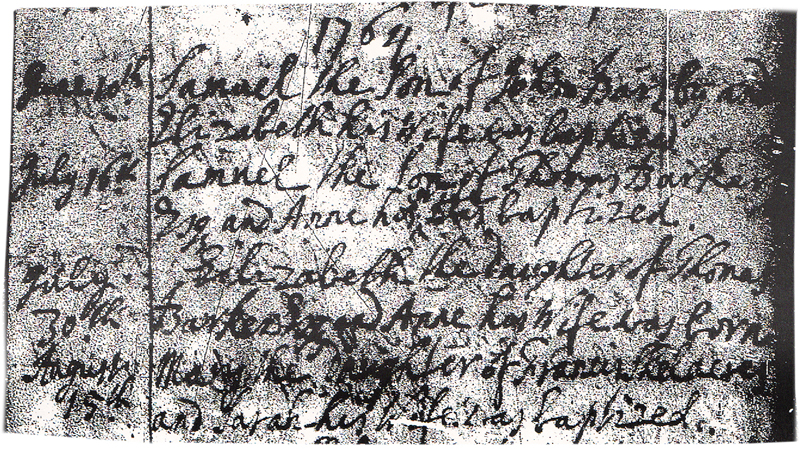 1764
June 10th Samuel the Son of John Barsby and
Elizabeth his wife was baptized
July 16th Samuel the Son of Thomas Barker
Esq and Anne his was baptized.
July Elizabeth the Daughter of Thomas
30th Barker Esq and Anne his wife was born
August Mary the Daughter of Francis
15th and Sarah his Wife was baptized.